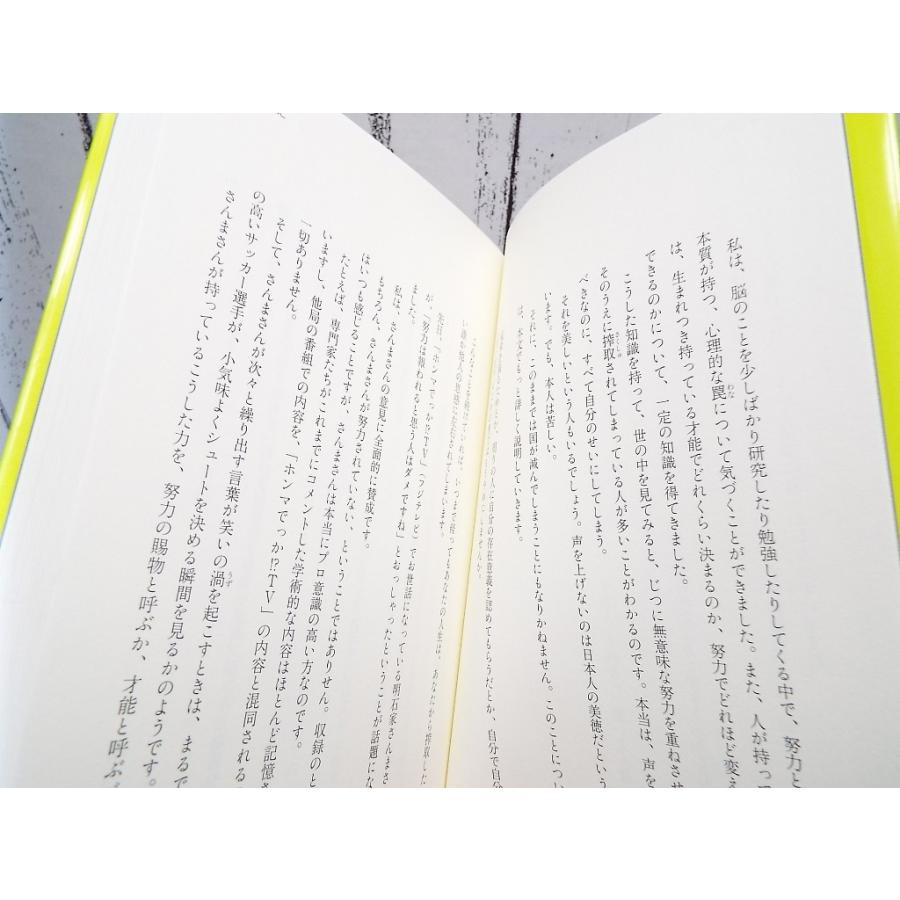 私は、脳のことを少しばかり研究したり勉強したりしてくる中で、努力と
本質が持つ、心理的な罠について気づくことができました。また、人が持っ
は、生まれつき持っている才能でどれくらい決まるのか、努力でどれほど変え
できるのかについて、一定の知識を得てきました。
こうした知識を持って、世の中を見てみると、じつに無意味な努力を重ねさせ
そのうえに搾取されてしまっている人が多いことがわかるのです。本当は、声を
べきなのに、すべて自分のせいにしてしまう。
それを美しいという人もいるでしょう。声を上げないのは日本人の美徳だという
います。でも、本人は苦しい。
それに、このままでは国が滅んでしまうことにもなりかねません。このことについ
は、本文でもっと詳しく説明していきます。
周りの人に自分の存在意義を認めてもらうだとか、自分で自分
こんなことを続けていれば、いつまで経ってもあなたの人生は、あなたから搾取した
い誰か他人の
先日、「ホンマでっか!?TV」(フジテレビ)でお世話になっている明石家さんまさ
が、「努力は報われると思う人はダメですね」とおっしゃったということが話題にな
ました。
私は、さんまさんの意見に全面的に賛成です。
もちろん、さんまさんが努力されていない、ということではありせん。収録のと
はいつも感じることですが、さんまさんは本当にプロ意識の高い方なのです。
たとえば、専門家たちがこれまでにコメントした学術的な内容はほとんど記憶さ
いますし、他局の番組での内容を、「ホンマでっか!?TV」の内容と混同される
一切ありません。
そして、さんまさんが次々と繰り出す言葉が笑いの渦を起こすときは、まるで
の高いサッカー選手が、小気味よくシュートを決める瞬間を見るかのようです。
さんまさんが持っているこうした力を、努力の賜物と呼ぶか、才能と呼ぶ